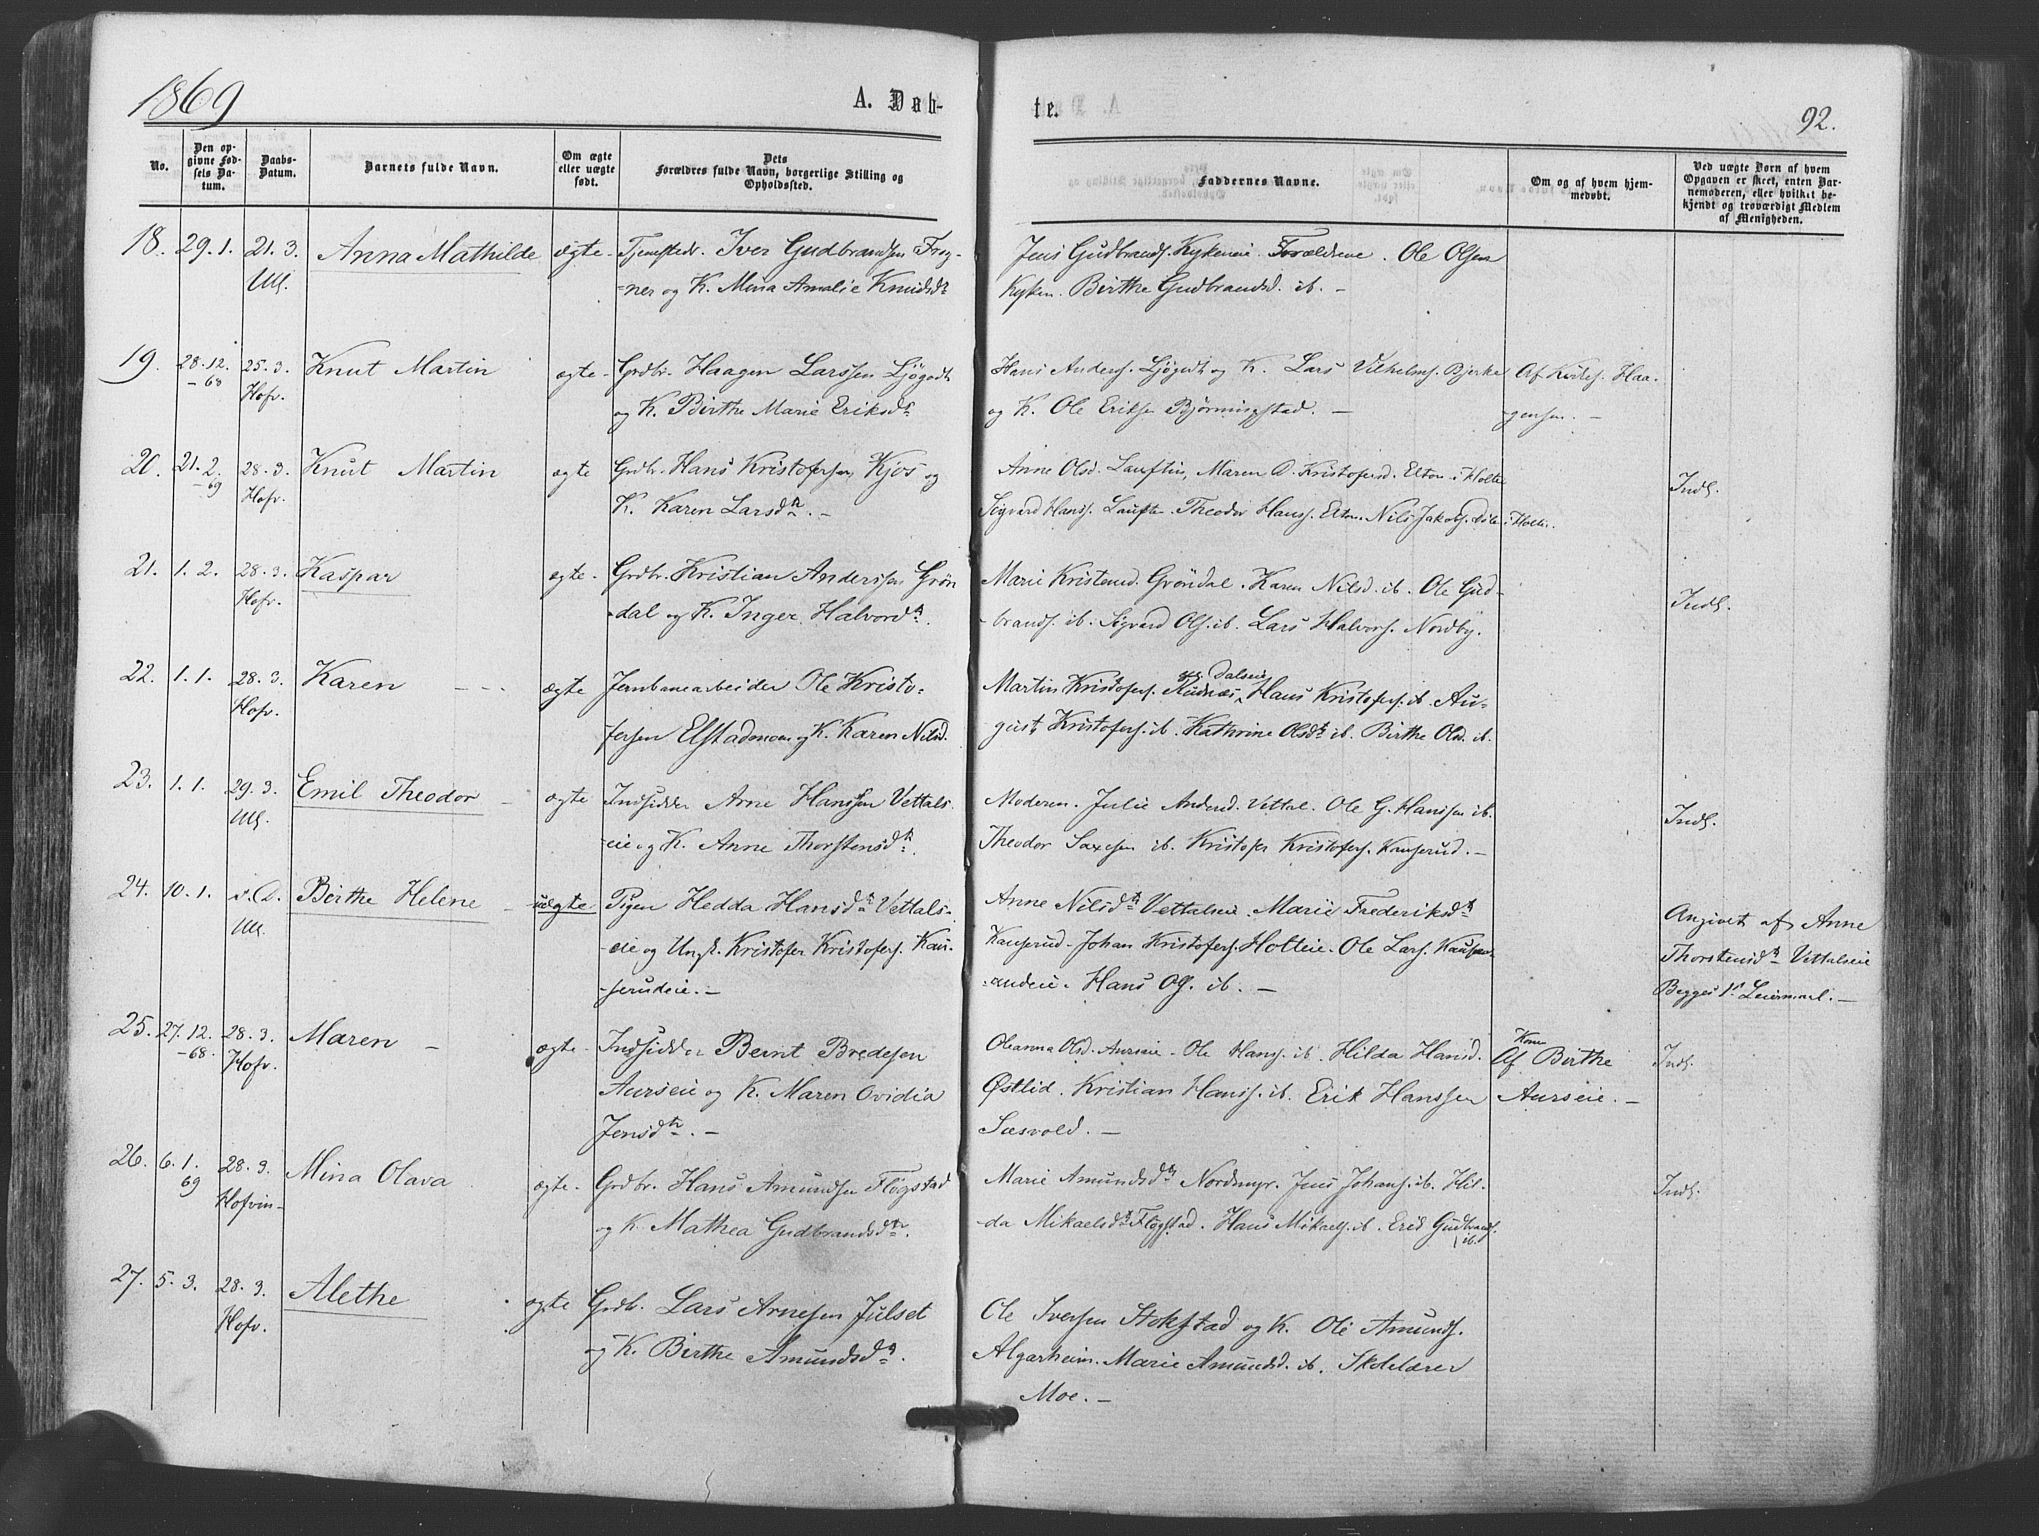 1869
A. Døb-
te.
92.
No.
Den op-
givne Fød-
sels Da-
tum.
Daabs-
Datum.
Barnets fulde Navn.
Om ægte
eller uægte
født.
Dets
Forældres fulde Navn, borgerlige Stilling og
Opholdssted.
Faddernes Navne.
Om og af hvem hjem-
medøbt.
Ved uægte Børn af hvem
Opgaven er skeet, enten Bar-
nemoderen, eller hvilket be-
kjendt og troværdigt Medlem
af Menigheden.
18. 29. 1. 21. 3. Anna Mathilde ægte - Tjenstedr. Iver Gudbrandsen Frog-
Ull. -ner og K. Mina Amalie Knudsdtr
Jens Gudbrands. Kykeneie. Forældrene. Ole Olsen
Kyken. Birthe Gudbrandsd. ib. -
19. 28. 12. 25. 3. Knut Martin ægte - Grdbr. Haagen Larssen Ljøgodt
-68 Hofv. og K. Birthe Marie Eriksdtr
Hans Anders. Ljøgodt og K. Lars Vilhelms. Bjerke Af Haa-
og K. Ole Eriksen Bjørningstad. - gensen. -
20. 21. 2. 28. 3. Knut Martin ægte Grdbr. Hans Kristofersen Kjos og
-69 Hofv. K. Karen Larsdtr. -
Anne Olsd. Lauften, Maren O. Kristofersd. Elton i Holter Indl.
Sigvard Hanss. Lauften. Theodor Hanss. Elton. Nils Jakobs. i Holter.
21. 1. 2. 28. 3. Kaspar ægte - Grdbr. Kristian Anderssen Grøn
Hofv. -dal og K. Inger Halvorsdtr.
Marie Kristensd. Grøndal. Karen Nilsd. ib. Ole Gud- Indl.
-brands. ib. Sigvard Ols. ib. Lars Halvors. Nordby.
22. 1. 1. 28. 3. Karen - - - ægte Jernbanearbeider Ole Kristo-
Hofv. fersen Elstadmoen og K. Karen Nilsd.
Martin Kristofers. Rudnæs Dalseie Hans Kristofers. ib. Au-
gust Kristofers. ib. Kathrine Olsdtr ib. Birthe Olsd. ib.
23. 1. 1. 29. 3. Emil Theodor - ægte Indsidder Arne Hanssen Vettals-
Ull. -eie og K. Anne Thorstensdtr.
Moderen. Julie Andersd. Vettal. Ole G. Hanssen ib. Indl.
Theodor Saxesen ib. Kristofer Kristofers. Kauserud. -
24. 10. 1. s. D. Birthe Helene - uægte Pigen Hedda Hansdtr Vettals-
Ull. -eie og Ungk. Kristofer Kristofers. Kau-
-serudeie. -
Anne Nilsdtr Vettalseie. Marie Frederiksdtr Angivet af Anne
Kauserud. Johan Kristofers. Holteie. Ole Lars. Kauser- Thorstensdtr Vettalseie
-udeie. Hans Ols. ib. - Begges 1ste Leiermaal. -
25. 27. 12. 28. 3. Maren - ægte - Indsidder Bernt Bredesen
-68. Hofv. Aurseie og K. Maren Ovidia
Jensdtr. -
Oleanna Olsd. Aurseie. Ole Hans. ib. Hilda Hansd. Af Kone Birthe Indl.
Østlid. Kristian Hanss. ib. Erik Hanssen Aurseie. -
Sæsvold. -
26. 6. 1. 28. 3. Mina Olava ægte - Grdbr. Hans Amundsen Fløgstad
69 Hofvin- og K. Mathea Gudbrandsdtr.
Marie Amundsdtr Nordmyr. Jens Johans. ib. Hil- Indl.
-da Mikaelsdtr Fløgstad. Hans Mikaels. ib. Erik Gudbrands.
ib.
27. 5. 3. 28. 3. Alethe ægte Grdbr. Lars Arnesen Julset
Hofv. og K. Birthe Amundsdtr.
Ole Iversen Stokstad og K. Ole Amunds.
Algarheim. Marie Amundsd. ib. Skolelærer
Moe. -